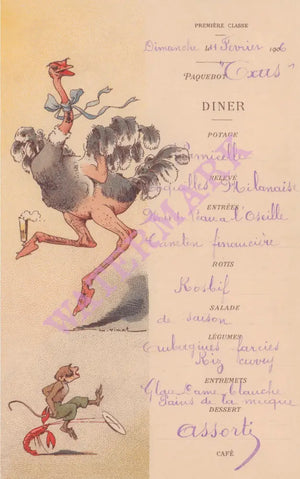 PREMIÈRE CLASSE
Dimanche Février 1906
PAQUEBOT
DINER
POTAGE
Vermicelle
RELEVÉ
Coquilles Milanaise
ENTRÉES
Noix de Veau à l'Oseille
Caneton financière
ROTIS
Rosbif
SALADE
de saison
LÉGUMES
Aubergines farcies
Riz curry
ENTREMETS
Glace Dame blanche
Pains de la mecque
DESSERT
Assorti
CAFÉ
WATERMARK